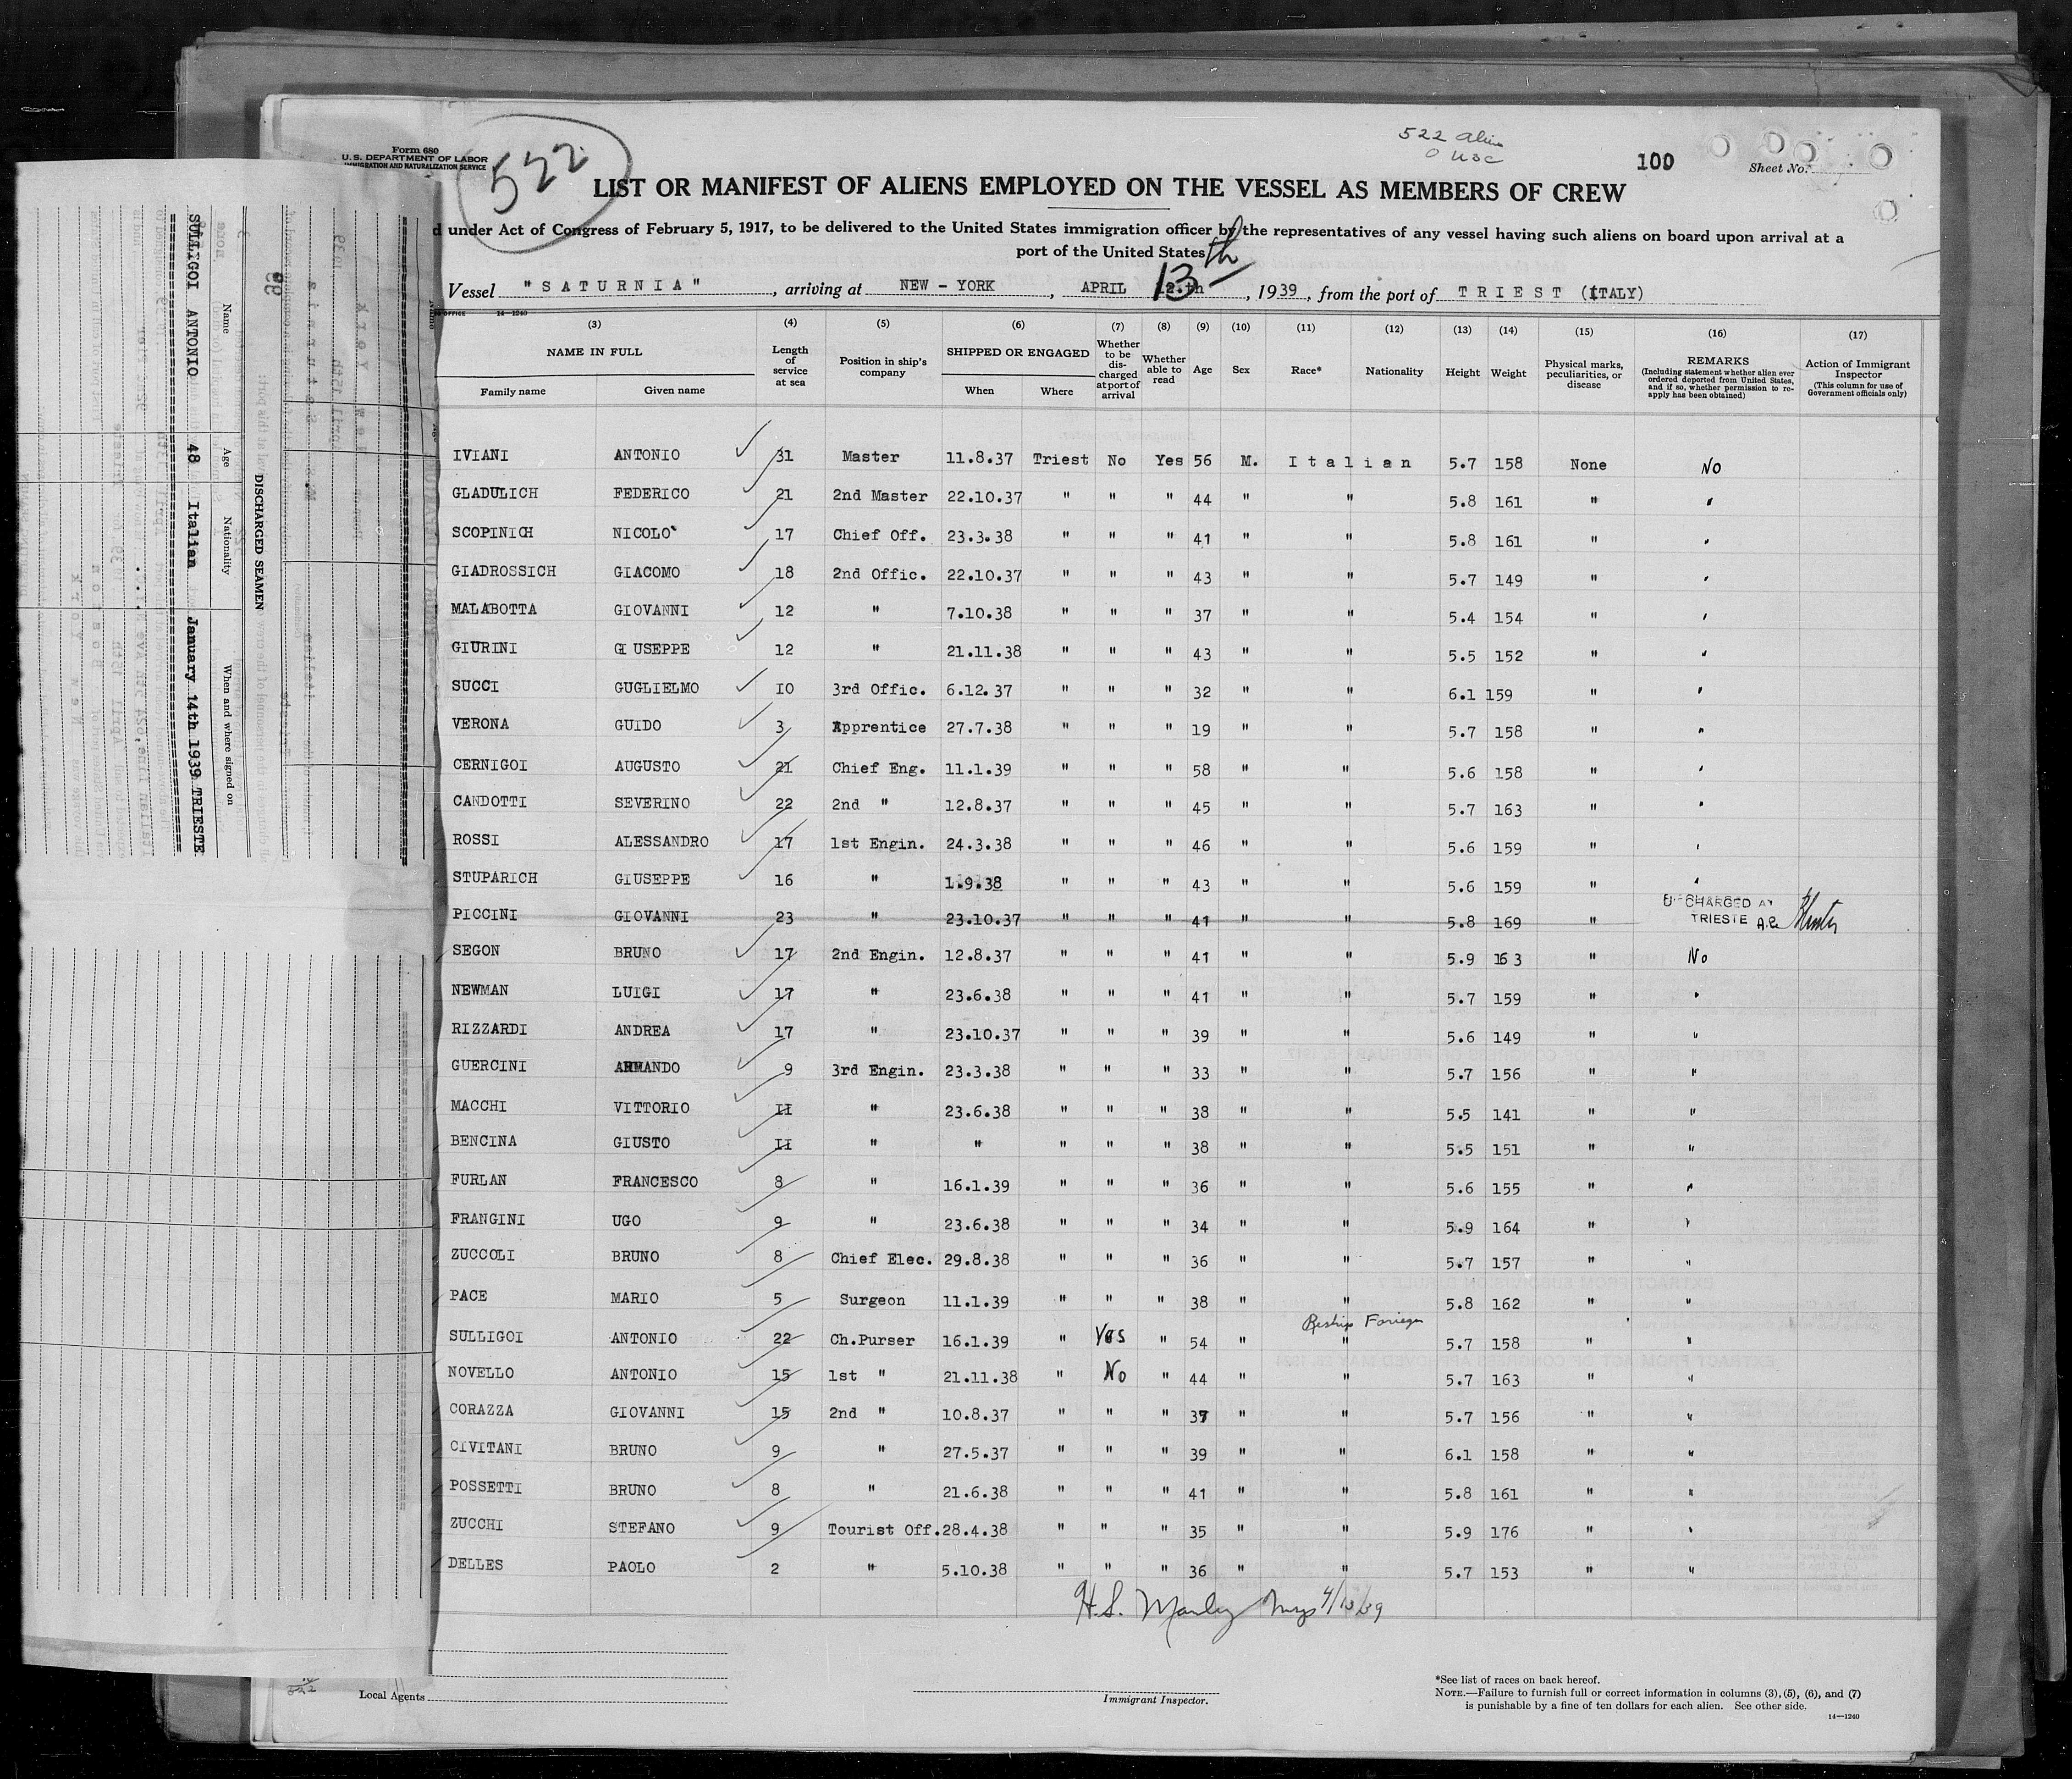 Form 680
U.S. DEPARTMENT OF LABOR
IMMIGRATION AND NATURALIZATION SERVICE
522
522 Alien
0 USC
100
Sheet No.
LIST OR MANIFEST OF ALIENS EMPLOYED ON THE VESSEL AS MEMBERS OF CREW
d under Act of Congress of February 5, 1917, to be delivered to the United States immigration officer by the representatives of any vessel having such aliens on board upon arrival at a
port of the United States
Vessel "SATURNIA", arriving at NEW-YORK, APRIL 12.th 13th, 1939, from the port of TRIEST (ITALY)
14—1240
(3) (4) (5) (6) (7) (8) (9) (10) (11) (12) (13) (14) (15) (16) (17)
NAME IN FULL Length of service at sea Position in ship's company SHIPPED OR ENGAGED Whether to be discharged at port of arrival Whether able to read Age Sex Race* Nationality Height Weight Physical marks, peculiarities, or disease REMARKS (Including statement whether alien ever ordered deported from United States, and if so, whether permission to reapply has been obtained) Action of Immigrant Inspector (This column for use of Government officials only)
Family name Given name When Where
IVIANI ANTONIO 31 Master 11.8.37 Triest No Yes 56 M. Italian 5.7 158 None No
GLADULICH FEDERICO 21 2nd Master 22.10.37 " " " 44 " " 5.8 161 " "
SCOPINICH NICOLO` 17 Chief Off. 23.3.38 " " " 41 " " 5.8 161 " "
GIADROSSICH GIACOMO 18 2nd Offic. 22.10.37 " " " 43 " " 5.7 149 " "
MALABOTTA GIOVANNI 12 " 7.10.38 " " " 37 " " 5.4 154 " "
GIURINI GIUSEPPE 12 " 21.11.38 " " " 43 " " 5.5 152 " "
SUCCI GUGLIELMO 10 3rd Offic. 6.12.37 " " " 32 " " 6.1 159 " "
VERONA GUIDO 3 Apprentice 27.7.38 " " " 19 " " 5.7 158 " "
CERNIGOI AUGUSTO 21 Chief Eng. 11.1.39 " " " 58 " " 5.6 158 " "
CANDOTTI SEVERINO 22 2nd " 12.8.37 " " " 45 " " 5.7 163 " "
ROSSI ALESSANDRO 17 1st Engin. 24.3.38 " " " 46 " " 5.6 159 " "
STUPARICH GIUSEPPE 16 " 1.9.38 " " " 43 " " 5.6 159 " "
PICCINI GIOVANNI 23 " 23.10.37 " " " 41 " " 5.8 169 " DISCHARGED AT TRIESTE
SEGON BRUNO 17 2nd Engin. 12.8.37 " " " 41 " " 5.9 163 " No
NEWMAN LUIGI 17 " 23.6.38 " " " 41 " " 5.7 159 " "
RIZZARDI ANDREA 17 " 23.10.37 " " " 39 " " 5.6 149 " "
GUERCINI ARMANDO 9 3rd Engin. 23.3.38 " " " 33 " " 5.7 156 " "
MACCHI VITTORIO 11 " 23.6.38 " " " 38 " " 5.5 141 " "
BENCINA GIUSTO 11 " " " " " 38 " " 5.5 151 " "
FURLAN FRANCESCO 8 " 16.1.39 " " " 36 " " 5.6 155 " "
FRANGINI UGO 9 " 23.6.38 " " " 34 " " 5.9 164 " "
ZUCCOLI BRUNO 8 Chief Elec. 29.8.38 " " " 36 " " 5.7 157 " "
PACE MARIO 5 Surgeon 11.1.39 " " " 38 " " 5.8 162 " "
Reship Foreign
SULLIGOI ANTONIO 22 Ch.Purser 16.1.39 " Yes " 54 " " 5.7 158 " "
NOVELLO ANTONIO 15 1st " 21.11.38 " No " 44 " " 5.7 163 " "
CORAZZA GIOVANNI 15 2nd " 10.8.37 " " " 37 " " 5.7 156 " "
CIVITANI BRUNO 9 " 27.5.37 " " " 39 " " 6.1 158 " "
POSSETTI BRUNO 8 " 21.6.38 " " " 41 " " 5.8 161 " "
ZUCCHI STEFANO 9 Tourist Off. 28.4.38 " " " 35 " " 5.9 176 " "
DELLES PAOLO 2 " 5.10.38 " " " 36 " " 5.7 153 " "
H.S. Manley 4/13/39
Local Agents
Immigrant Inspector.
*See list of races on back hereof.
NOTE.—Failure to furnish full or correct information in columns (3), (5), (6), and (7)
is punishable by a fine of ten dollars for each alien. See other side.
14—1240
DISCHARGED SEAMEN
Name Age Nationality When and where signed on
SULLIGOI ANTONIO 48 Italian January 14th 1939 TRIESTE